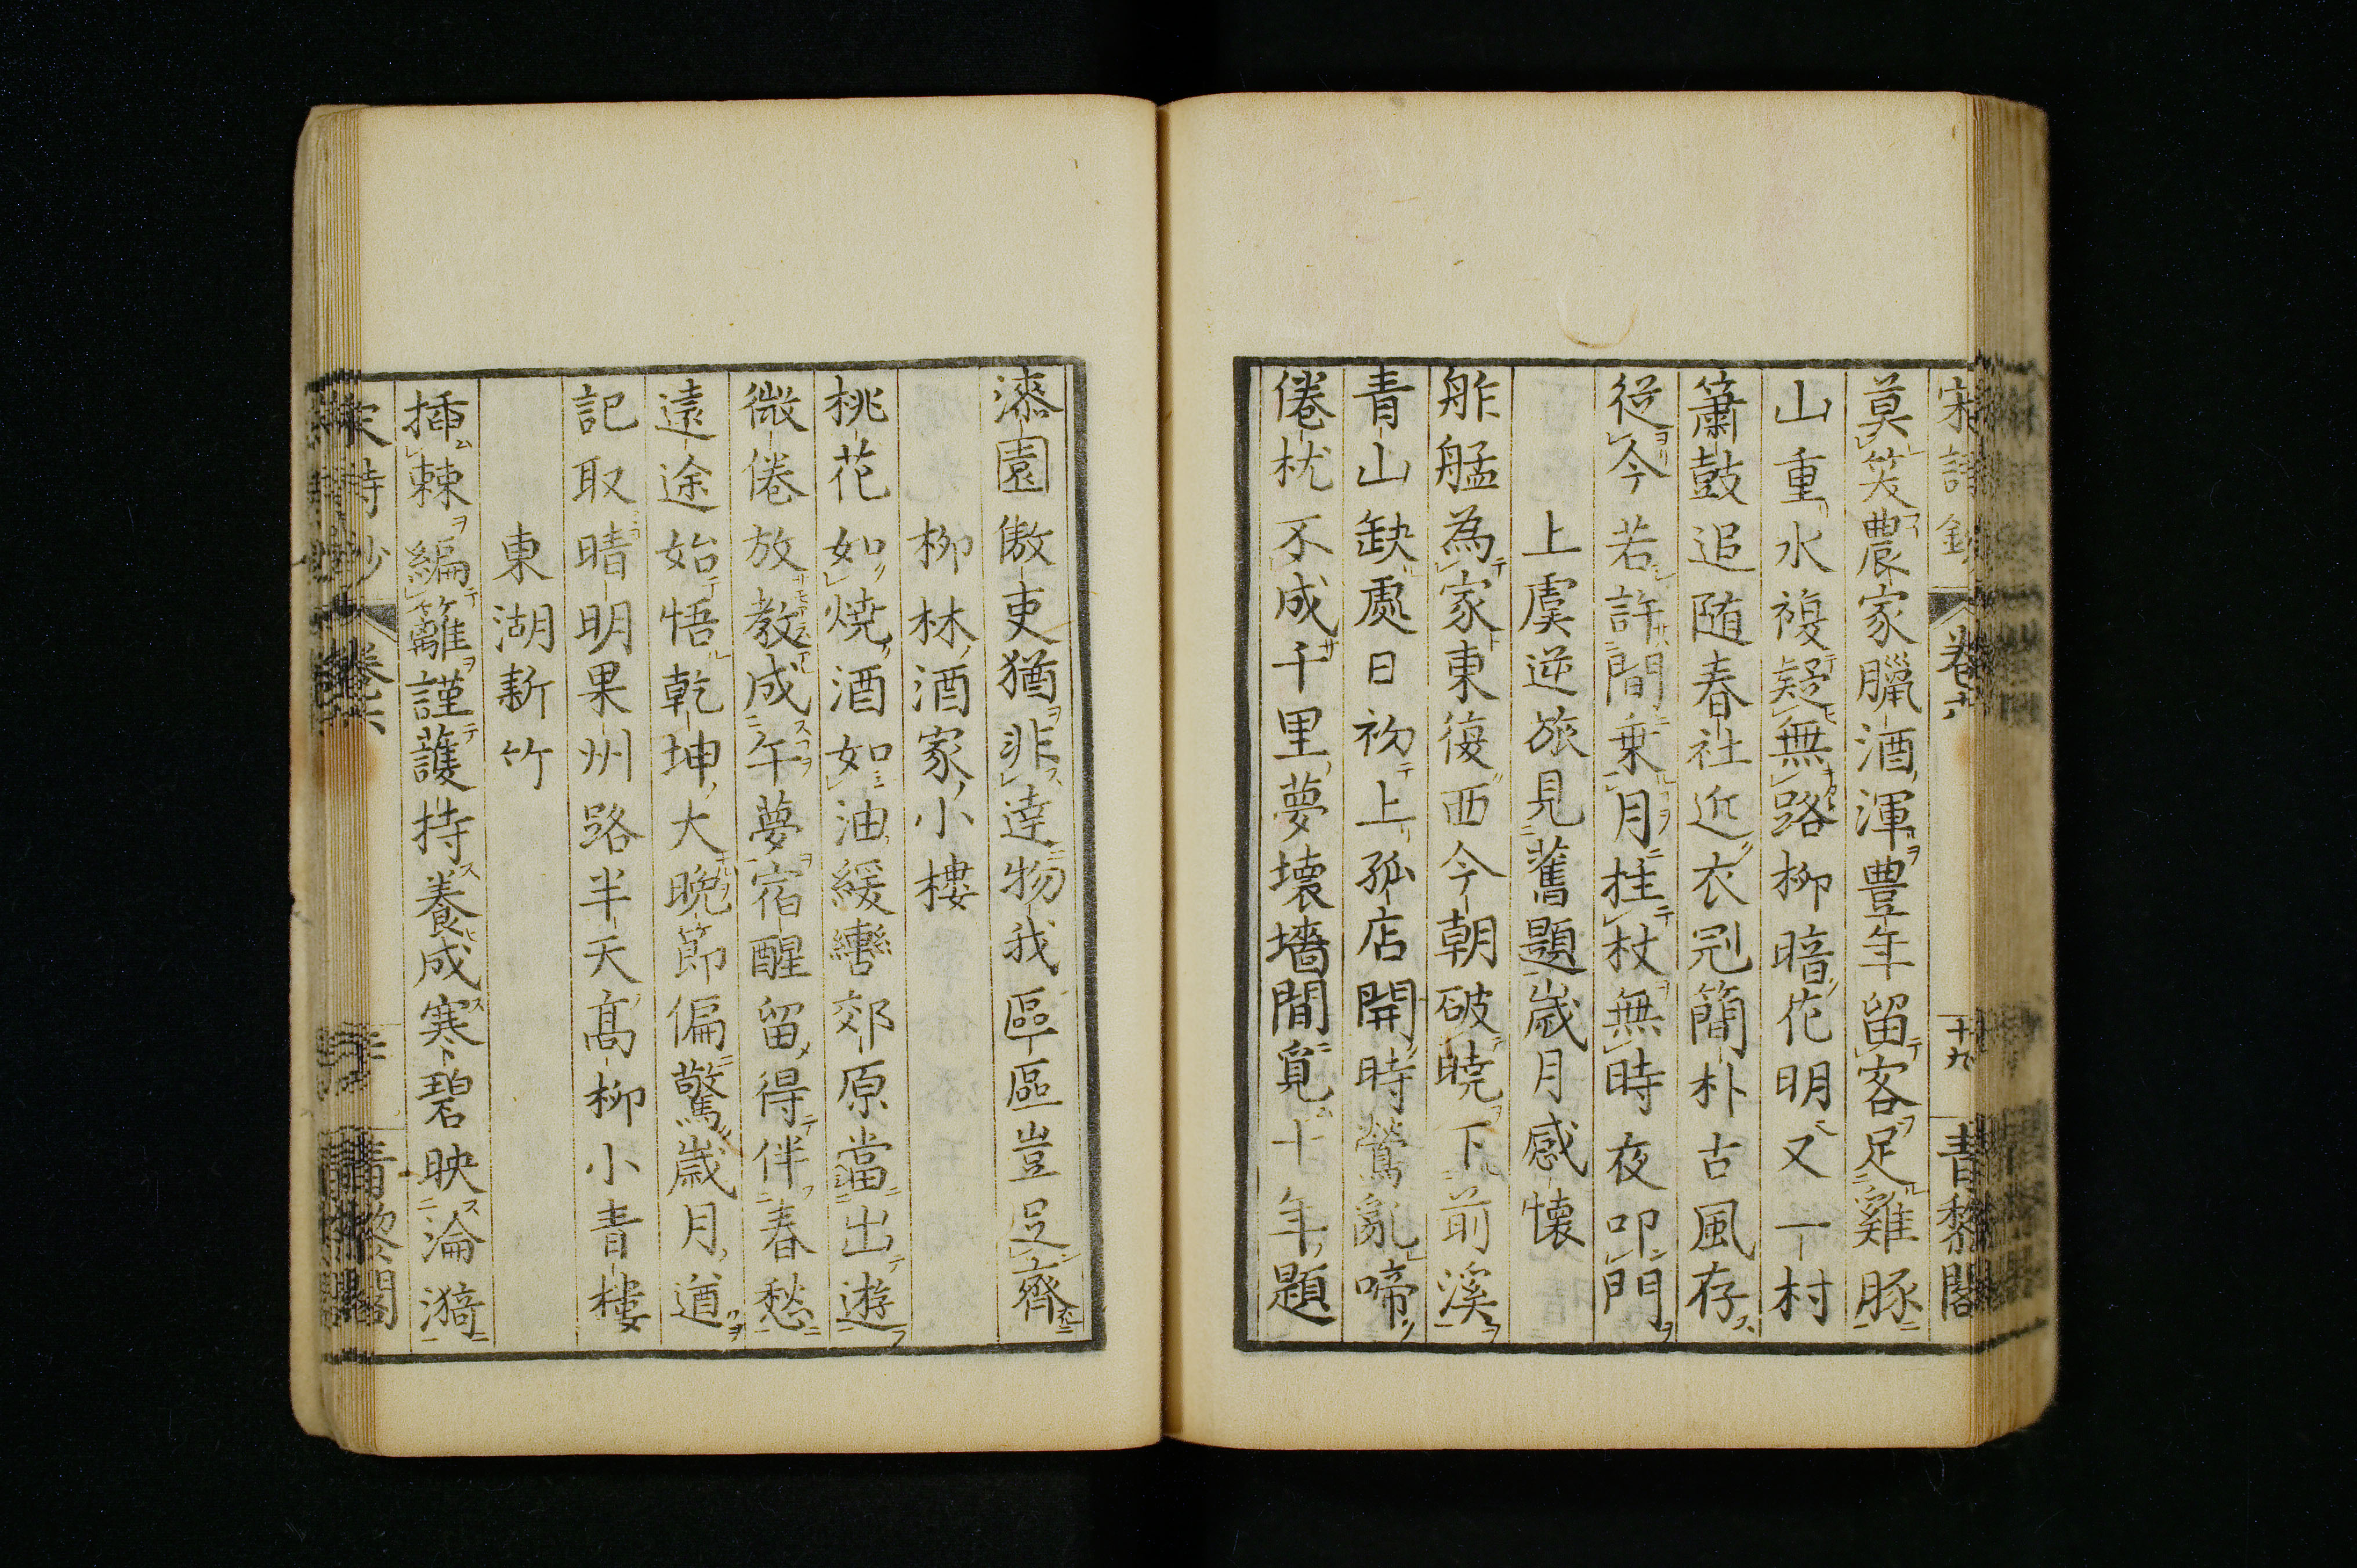 宋詩鈔 卷六 十九 青黎閣
莫笑農家臘酒渾豊年留客足雞豚
山重水複疑無路柳暗花明又一村
簫鼓追随春社近衣冠簡朴古風存
從今若許閒乗月拄杖無時夜叩門
上虞逆旅見舊題歳月感懐
舴艋為家東復西今朝破暁下前溪
青山缺處日初上孤店開時鶯亂啼
倦枕不成千里夢壊墻閒覓十年題
漆園傲吏猶非達物我區區豈足齊
柳林酒家小樓
桃花如焼酒如油緩轡郊原當出遊
微倦放教成午夢宿醒留得伴春愁
遠途始悟乾坤大晩節偏驚歳月遒
記取晴明果州路半天高柳小青樓
東湖新竹
插棘編籬謹護持養成寒碧映淪漪
宋詩鈔 卷六 青黎閣